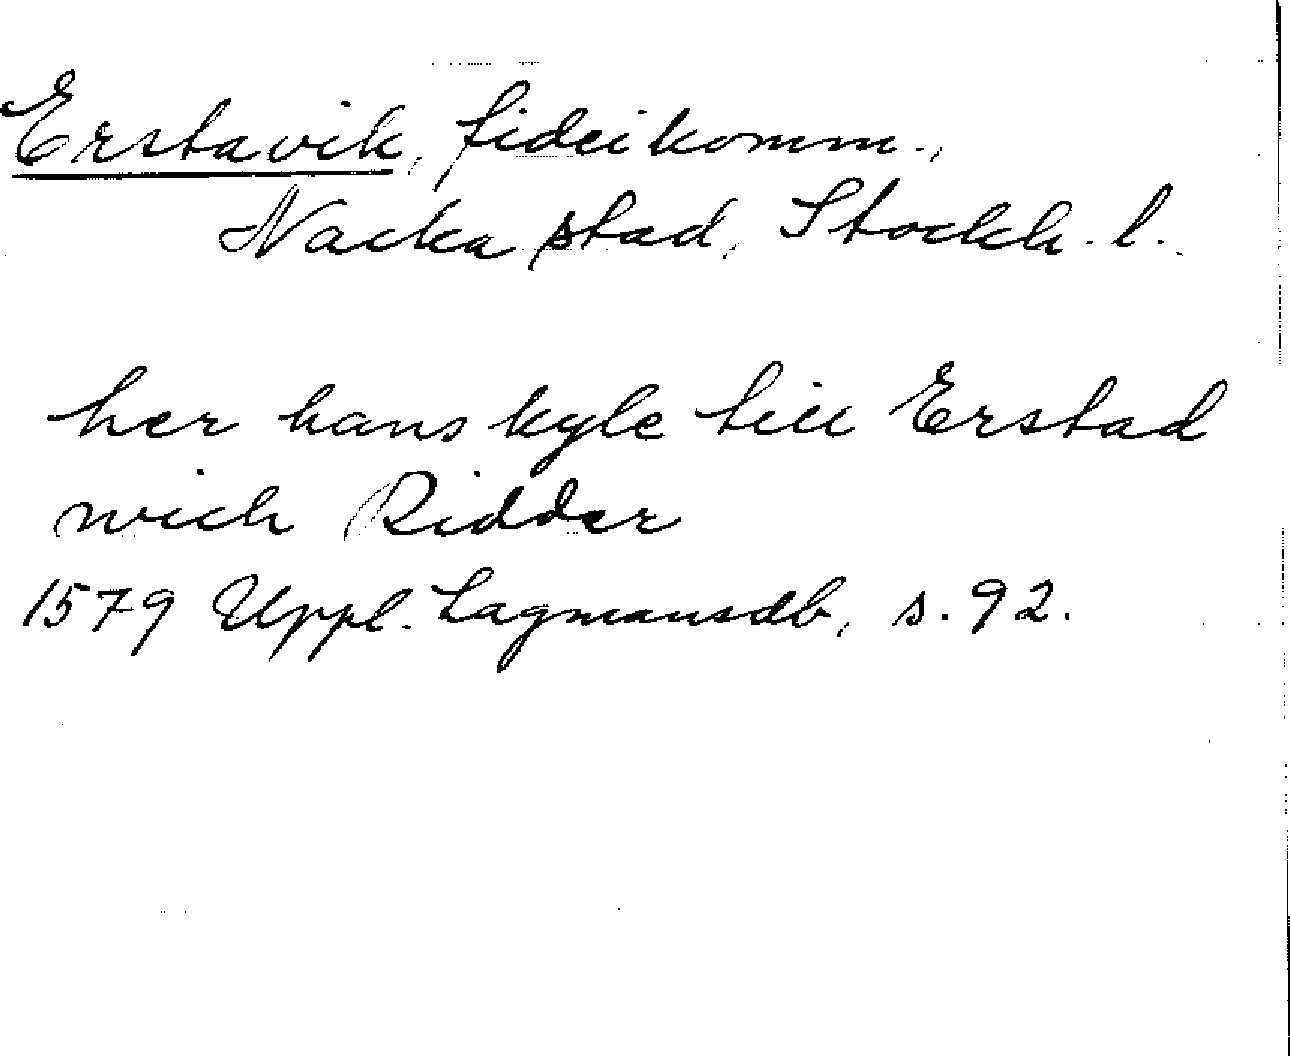 Erstavik, fideikomm.,
Nacka stad, Stockh. l.
her hans kyle till Erstad
wich Ridder
1579 Uppl. Lagmansdb, s. 92.